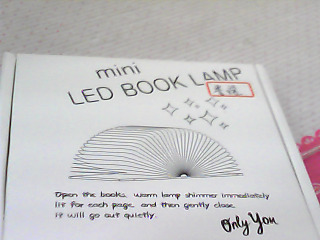 mini
LED BOOK LAMP
Open the books, warm lamp shimmer immediately
lit for each page, and then gently close,
it will go out quietly.
Only You